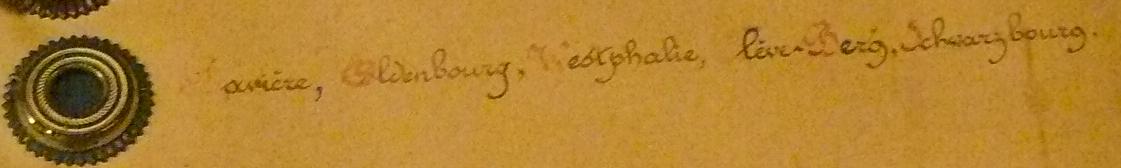 Bavière, Oldenbourg, Westphalie, Clève-Berg, Schwarzbourg.